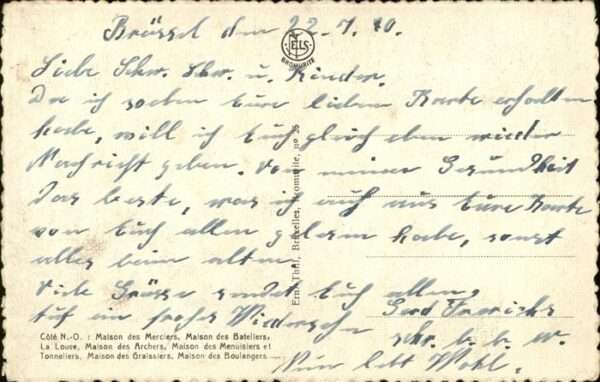 Brüssel den 22.7.40.
NELS
BROMURITE
Liebe Schw. Schw. u. Kinder.
Da ich soeben Eure lieben Karte erhalten
habe, will ich Euch gleich eben wieder
Nachricht geben. Von meiner Gesundheit
das beste, was ich auch aus Eure Karte
von Euch allen gelesen habe, sonst
alles beim alten.
Viele Grüsse sendet Euch allen,
Gerd
Auf ein frohes Wiedersehn
Nun lebt Wohl.
Ern. Thill, Bruxelles, Bromurite, no 25
Côté N.-O. : Maison des Merciers, Maison des Bateliers,
La Louve, Maison des Archers, Maison des Menuisiers et
Tonneliers, Maison des Graissiers, Maison des Boulangers